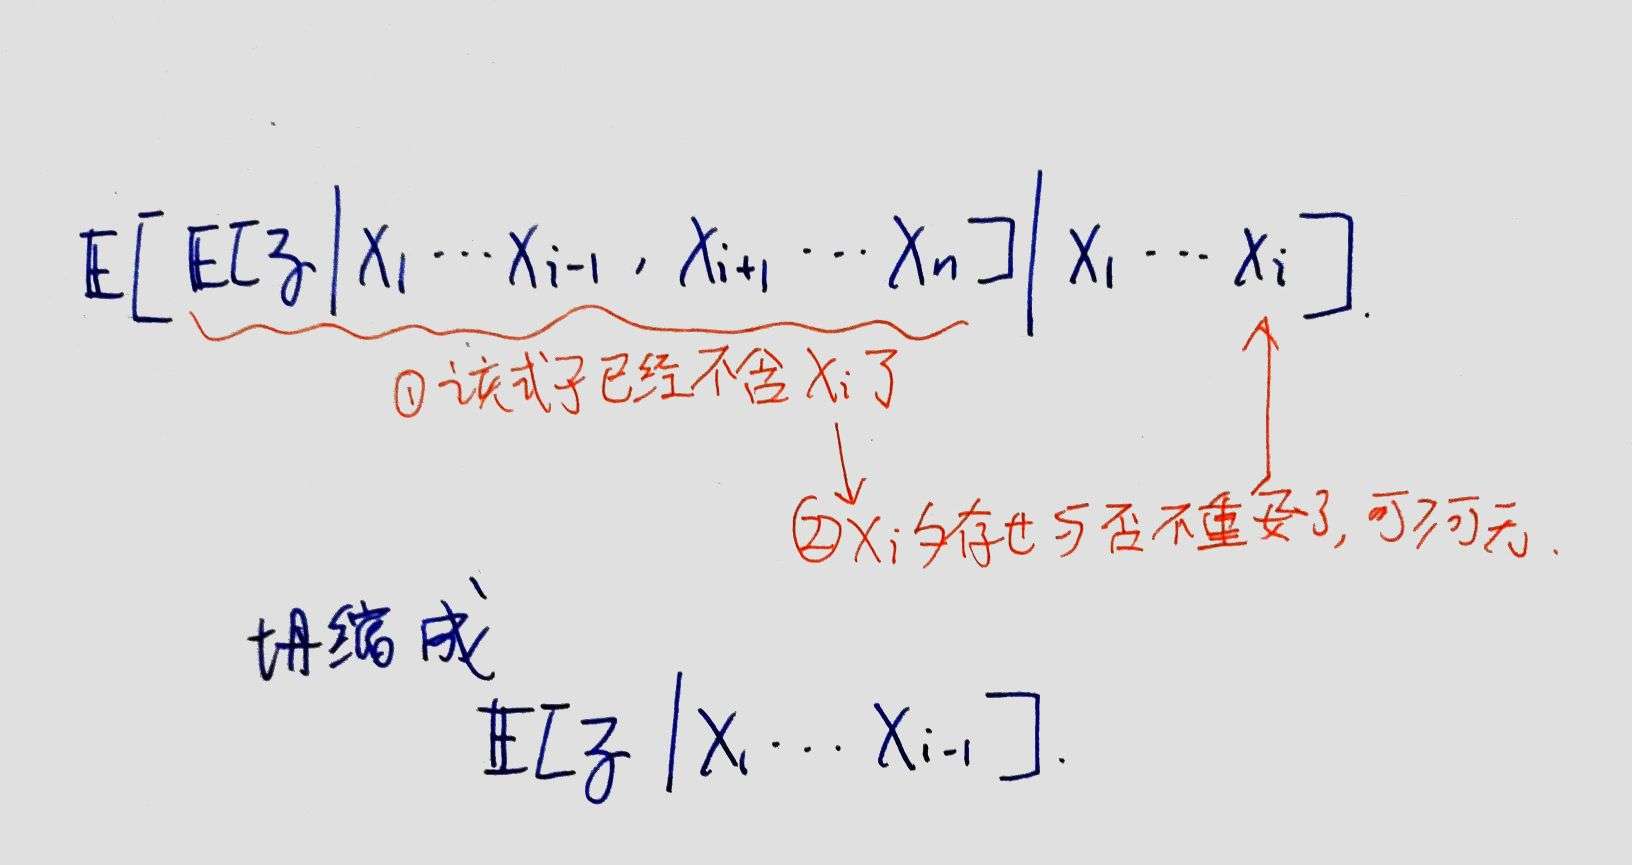 E[E[Z|X₁ ⋯ Xᵢ₋₁, Xᵢ₊₁ ⋯ Xₙ]|X₁ ⋯ Xᵢ].
①该式子已经不含 Xᵢ了
②Xᵢ的存在与否不重要了,可有可无.
坍缩成
E[Z|X₁ ⋯ Xᵢ₋₁].